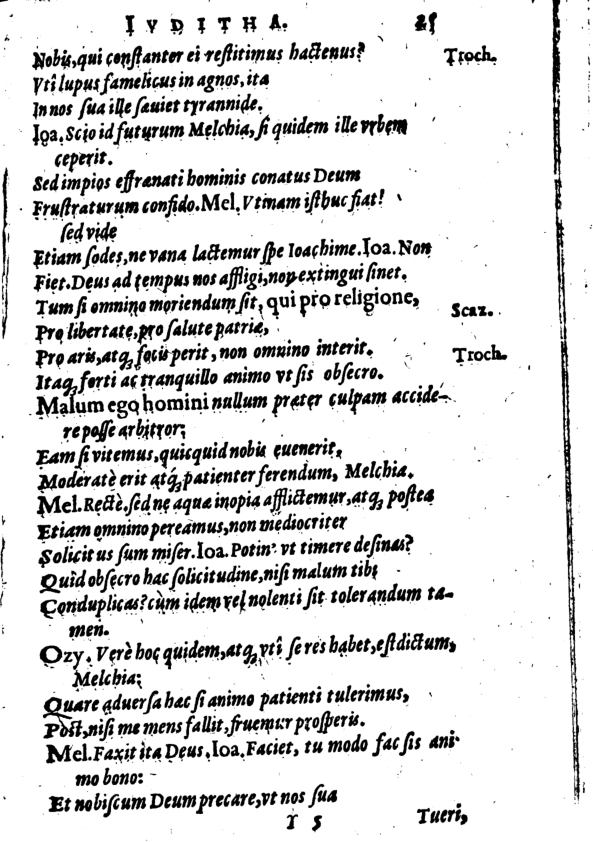 IVDITHA. 25
Nobis, qui conſtanter ei reſtitimus hactenus? Troch.
Vtî lupus famelicus in agnos, ita
In nos ſua ille ſæuiet tyrannide.
Ioa. Scio id futurum Melchia, ſi quidem ille vrbem
ceperit.
Sed impios effrænati hominis conatus Deum
Fruſtraturum confido. Mel. Vtinam iſthuc fiat!
ſed vide
Etiam ſodes, ne vana lactemur ſpe Ioachime. Ioa. Non
Fiet. Deus ad tempus nos affligi, non extingui ſinet.
Tum ſi omnino moriendum ſit, qui pro religione,
Scaz.
Pro libertate, pro ſalute patriæ,
Pro aris, atq; focis perit, non omnino interit. Troch.
Itaq; forti ac tranquillo animo vt ſis obſecro.
Malum ego homini nullum præter culpam accide-
re poſſe arbitror;
Eam ſi vitemus, quicquid nobis euenerit,
Moderatè erit atq; patienter ferendum, Melchia.
Mel. Rectè. ſed ne aquæ inopia afflictemur, atq; poſtea
Etiam omnino pereamus, non mediocriter
Solicitus ſum miſer. Ioa. Potin' vt timere deſinas?
Quid obſecro hac ſolicitudine, niſi malum tibi
Conduplicas? cùm idem vel nolenti ſit tolerandum ta-
men.
Ozy. Verè hoc quidem, atq; vtî ſe res habet, eſt dictum,
Melchia;
Quare aduerſa hæc ſi animo patienti tulerimus,
Pòst, niſi me mens fallit, fruemur proſperis.
Mel. Faxit ita Deus. Ioa. Faciet, tu modo fac ſis ani-
mo bono:
Et nobiſcum Deum precare, vt nos ſua
I 5 Tueri,